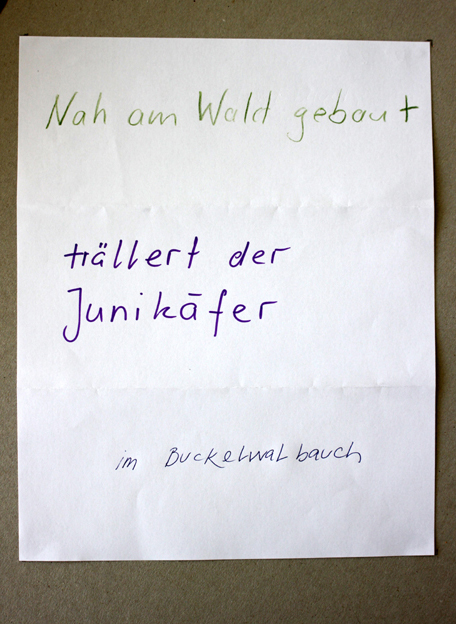 Nah am Wald gebaut
trällert der
Junikäfer
im Buckelwalbauch